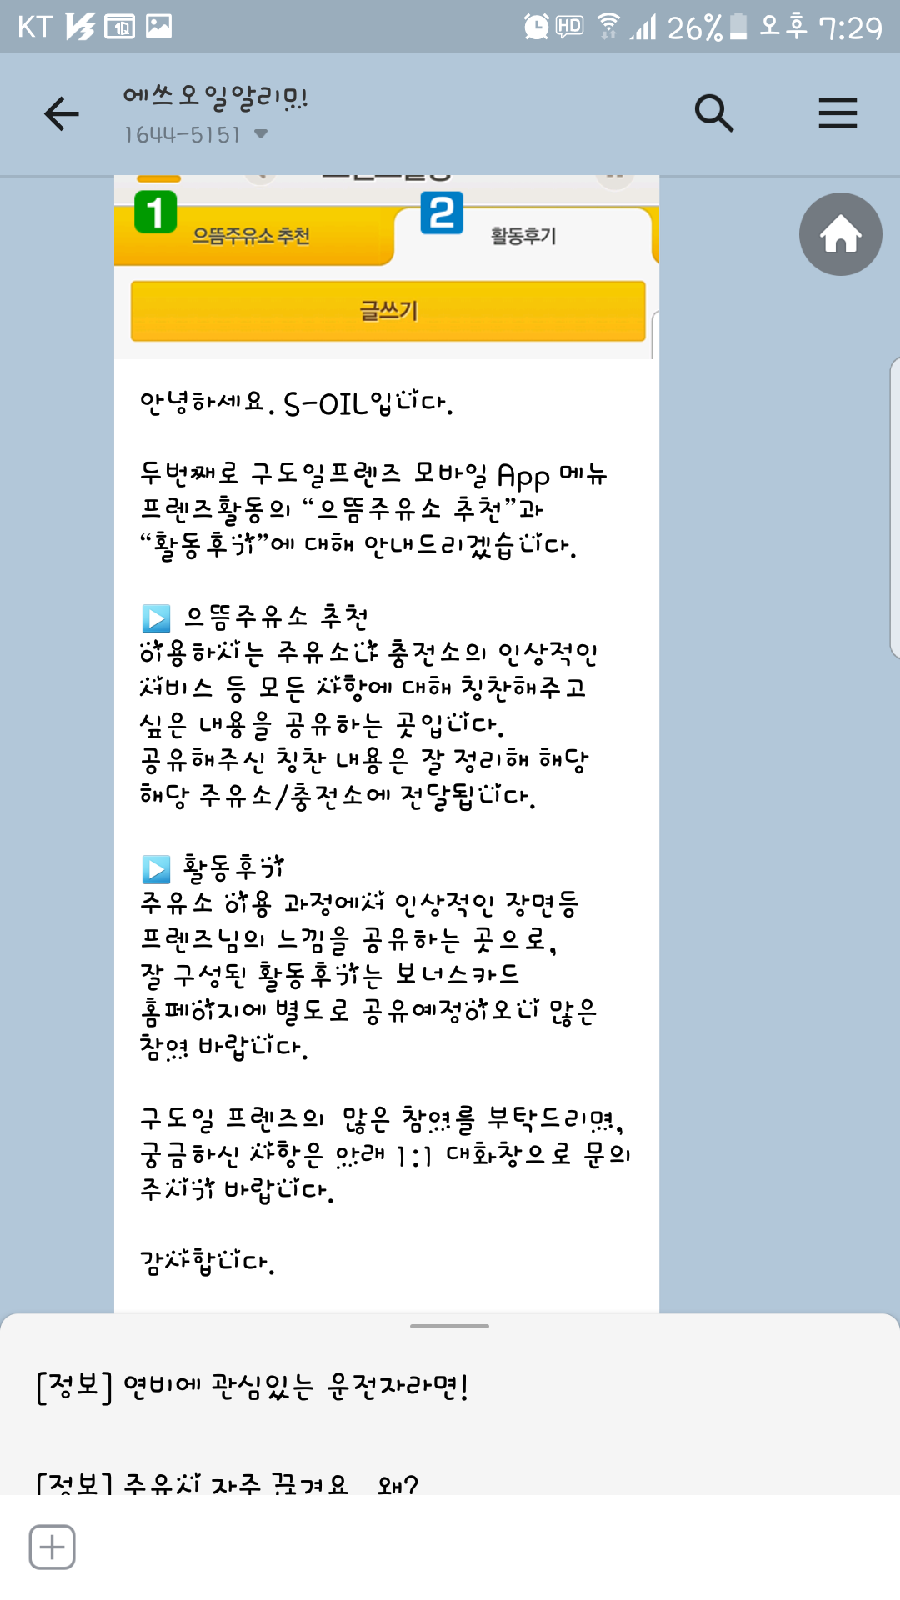 KT 26% 오후 7:29
에쓰오일알리미
1644-5151
1 으뜸주유소 추천 2 활동후기
글쓰기
안녕하세요. S-OIL입니다.
두번째로 구도일프렌즈 모바일 App 메뉴
프렌즈활동의 “으뜸주유소 추천”과
“활동후기”에 대해 안내드리겠습니다.
▶ 으뜸주유소 추천
이용하시는 주유소나 충전소의 인상적인
서비스 등 모든 사항에 대해 칭찬해주고
싶은 내용을 공유하는 곳입니다.
공유해주신 칭찬 내용은 잘 정리해 해당
해당 주유소/충전소에 전달됩니다.
▶ 활동후기
주유소 이용 과정에서 인상적인 장면등
프렌즈님의 느낌을 공유하는 곳으로,
잘 구성된 활동후기는 보너스카드
홈페이지에 별도로 공유예정이오니 많은
참여 바랍니다.
구도일 프렌즈의 많은 참여를 부탁드리며,
궁금하신 사항은 아래 1:1 대화창으로 문의
주시기 바랍니다.
감사합니다.
[정보] 연비에 관심있는 운전자라면!
[정보] 주유시 자주 끊겨요.. 왜?